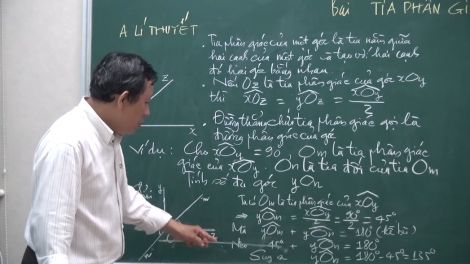 Bài TIA PHÂN GI
A LÍ THUYẾT
. Tia phân giác của một góc là tia nằm giữa
hai cạnh của một góc và tạo với hai cạnh
đó hai góc bằng nhau.
. Nếu Oz là tia phân giác của góc xOy
thì xOz = yOz = xOy/2
. Đường thẳng chứa tia phân giác gọi là
đường phân giác của góc
Ví dụ: Cho xOy = 90° Om là tia phân giác
giác của xOy. On là tia đối của tia Om
Tính số đo góc yOn
Ta có Om là tia phân giác của xOy
⇒ yOm = xOy/2 = 90°/2 = 45°
Mà yOm + yOn = 180° (kề bù)
Nên 45° + yOn = 180°
Suy ra yOn = 180° - 45° = 135°
z
x
y
m